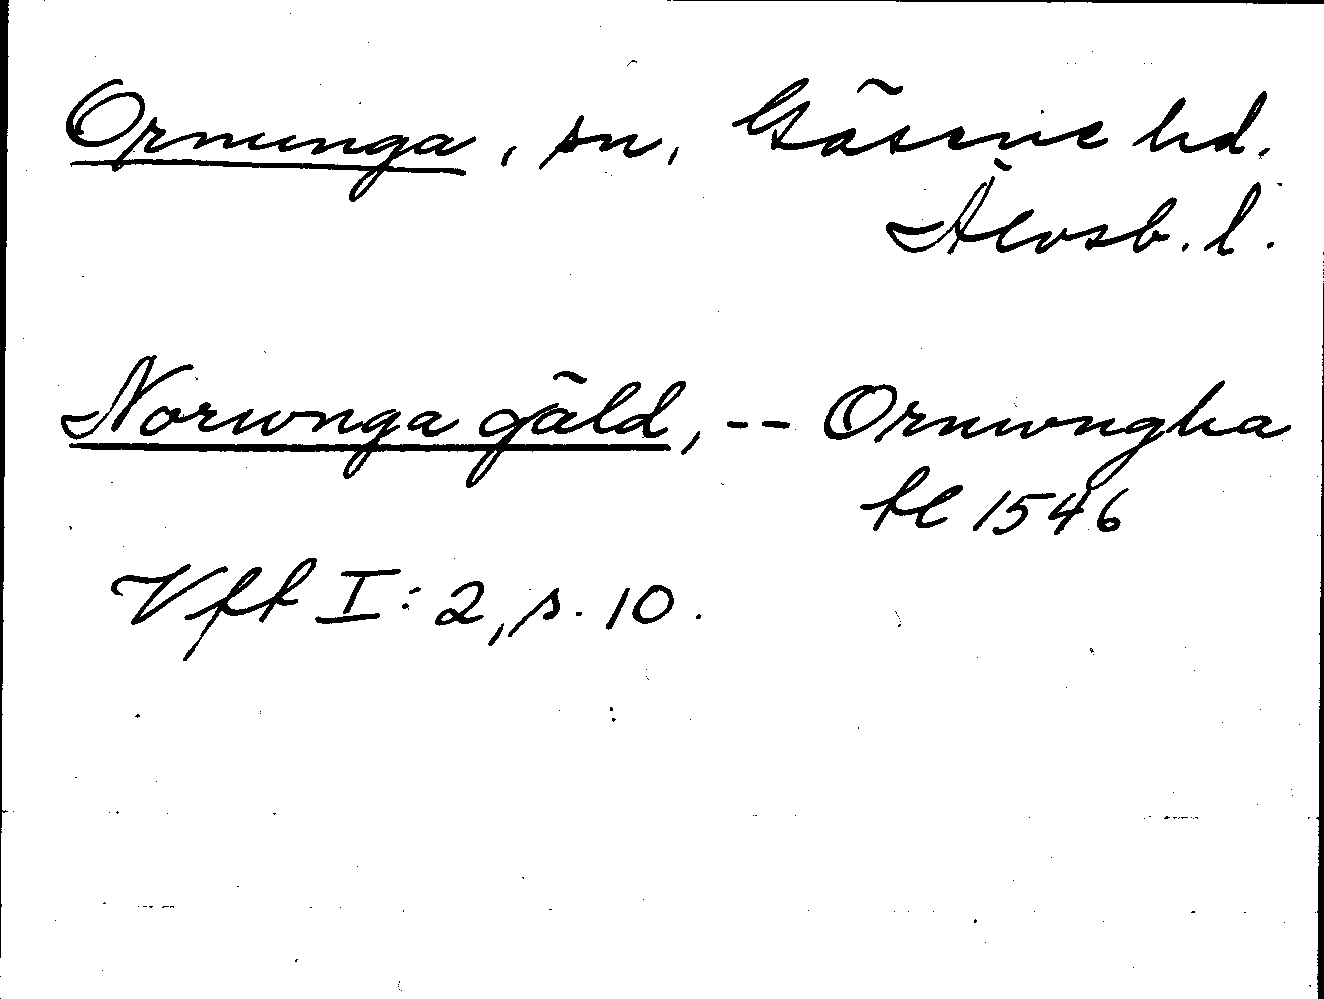 Ornunga, sn, Gäsene hd.
Älvsb. l.
Norwnga gäld, -- Ornwngha
kl 1546
Vff I: 2, s. 10.